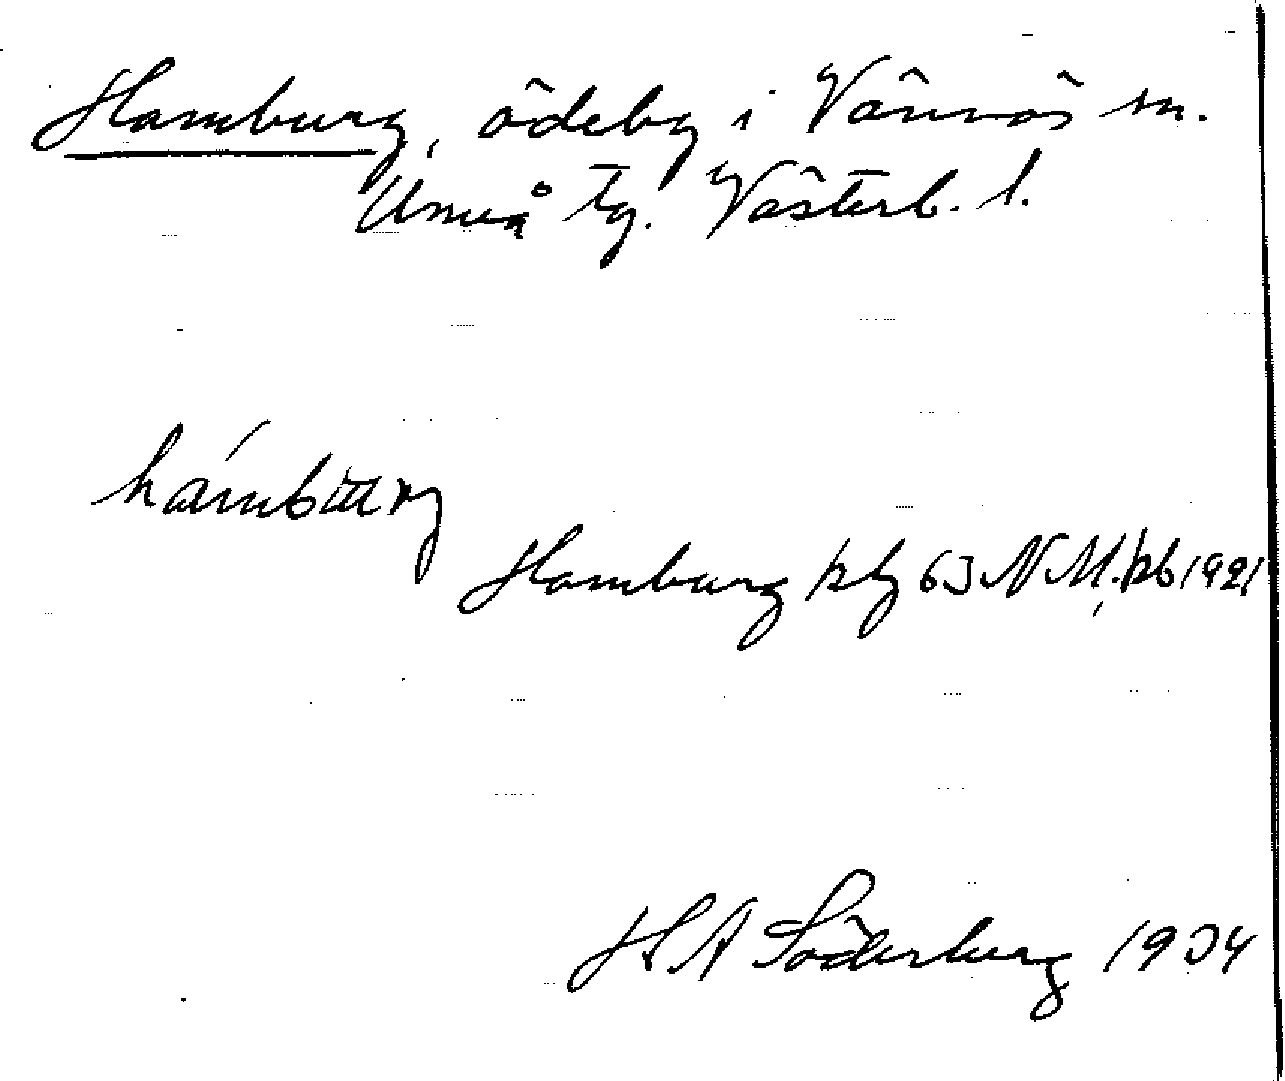 Hamburg, ödeby i Vännäs sn.
Umeå tg. Västerb. l.
Hamburg kbl 63 N.M. kb 1921
H A Söderberg 1934